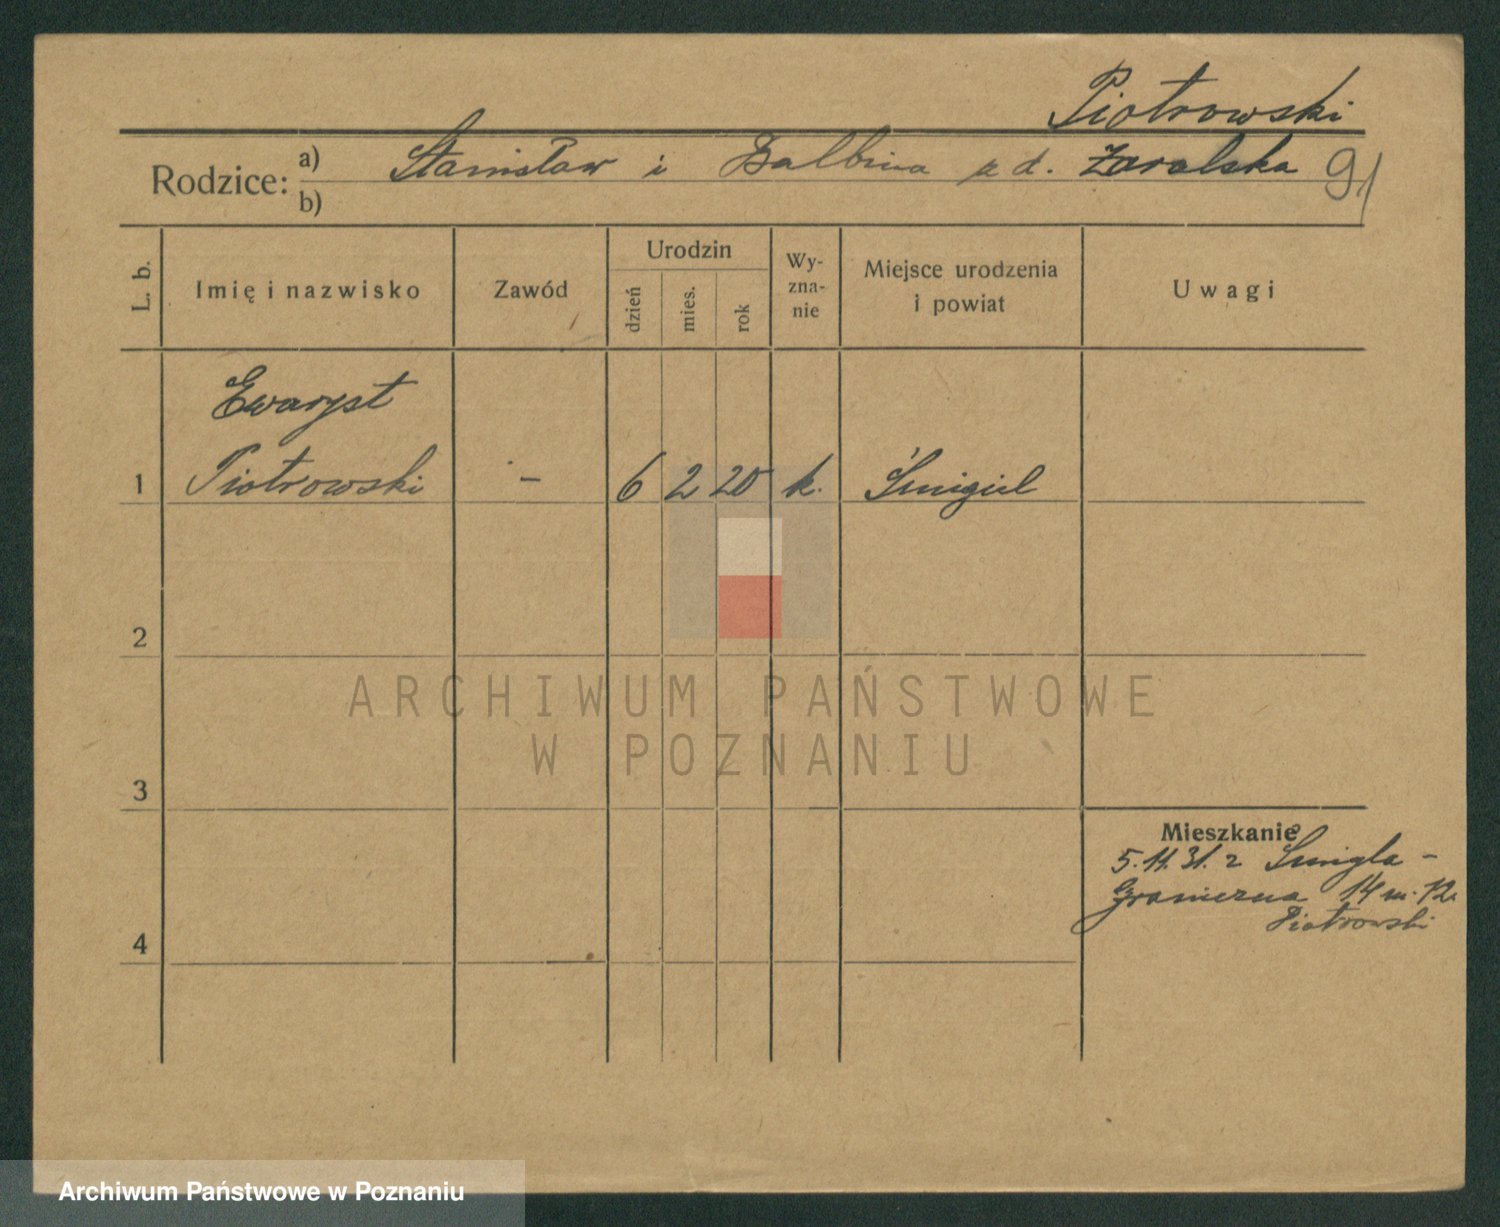 Piotrowski
Rodzice: a) Stanisław i Balbina z d. Żaralska 91
b)
L. b. Imię i nazwisko Zawód Urodzin dzień mies. rok Wy-zna-nie Miejsce urodzenia i powiat Uwagi
Ewaryst
1 Piotrowski - 6 2 20 k. Śmigiel
2
ARCHIWUM PAŃSTWOWE
W POZNANIU
3
Mieszkanie
5.11.31. z Śmigla -
Graniczna 14 m. 12.
Piotrowski
4
Archiwum Państwowe w Poznaniu